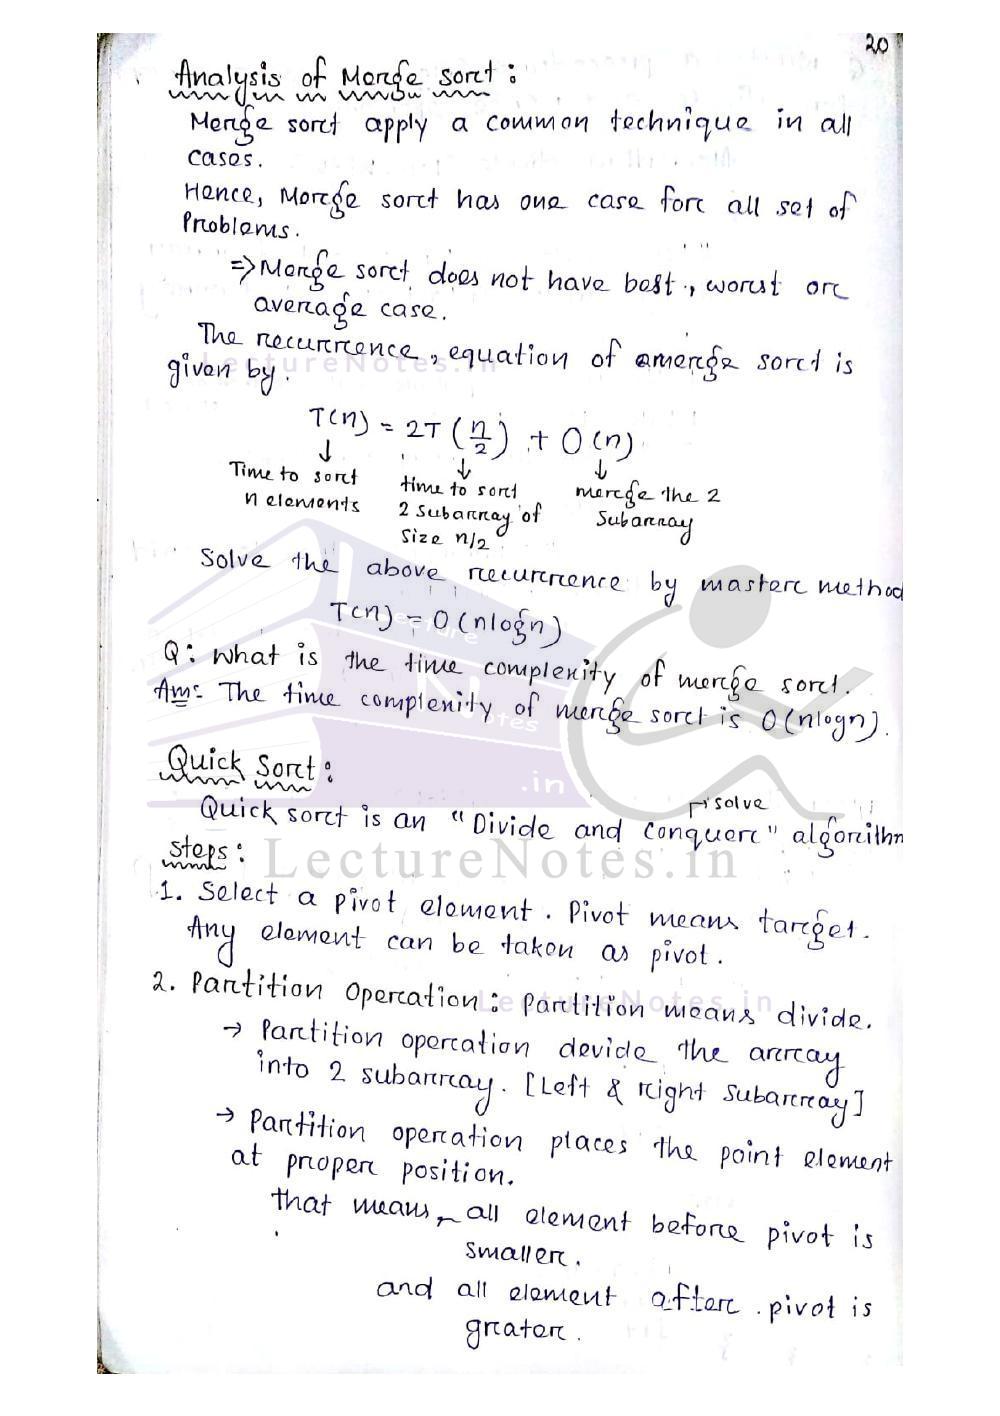 20
Analysis of Merge sort :
Merge sort apply a common technique in all
cases.
Hence, Merge sort has one case for all set of
Problems.
⇒ Merge sort does not have best, worst or
average case.
The recurrence, equation of merge sort is
given by.
LectureNotes.in
T(n) = 2T (n/2) + O(n)
↓ ↓ ↓
Time to sort n elements
time to sort 2 subarray of size n/2
merge the 2 Subarray
Solve the above recurrence by master method
T(n) = O(nlogn)
Q: What is the time complexity of merge sort.
Ans:- The time complexity of merge sort is O(nlogn).
Lecture Notes .in
Quick Sort :
→ solve
Quick sort is an "Divide and Conquer" algorithm
LectureNotes.in
steps :
1. Select a pivot element. Pivot means target.
Any element can be taken as pivot.
2. Partition Operation : Partition means divide.
LectureNotes.in
→ Partition operation devide the array
into 2 subarray. [Left & right Subarray]
→ Partition operation places the point element
at proper position.
that means, all element before pivot is
smaller.
and all element after pivot is
greater.